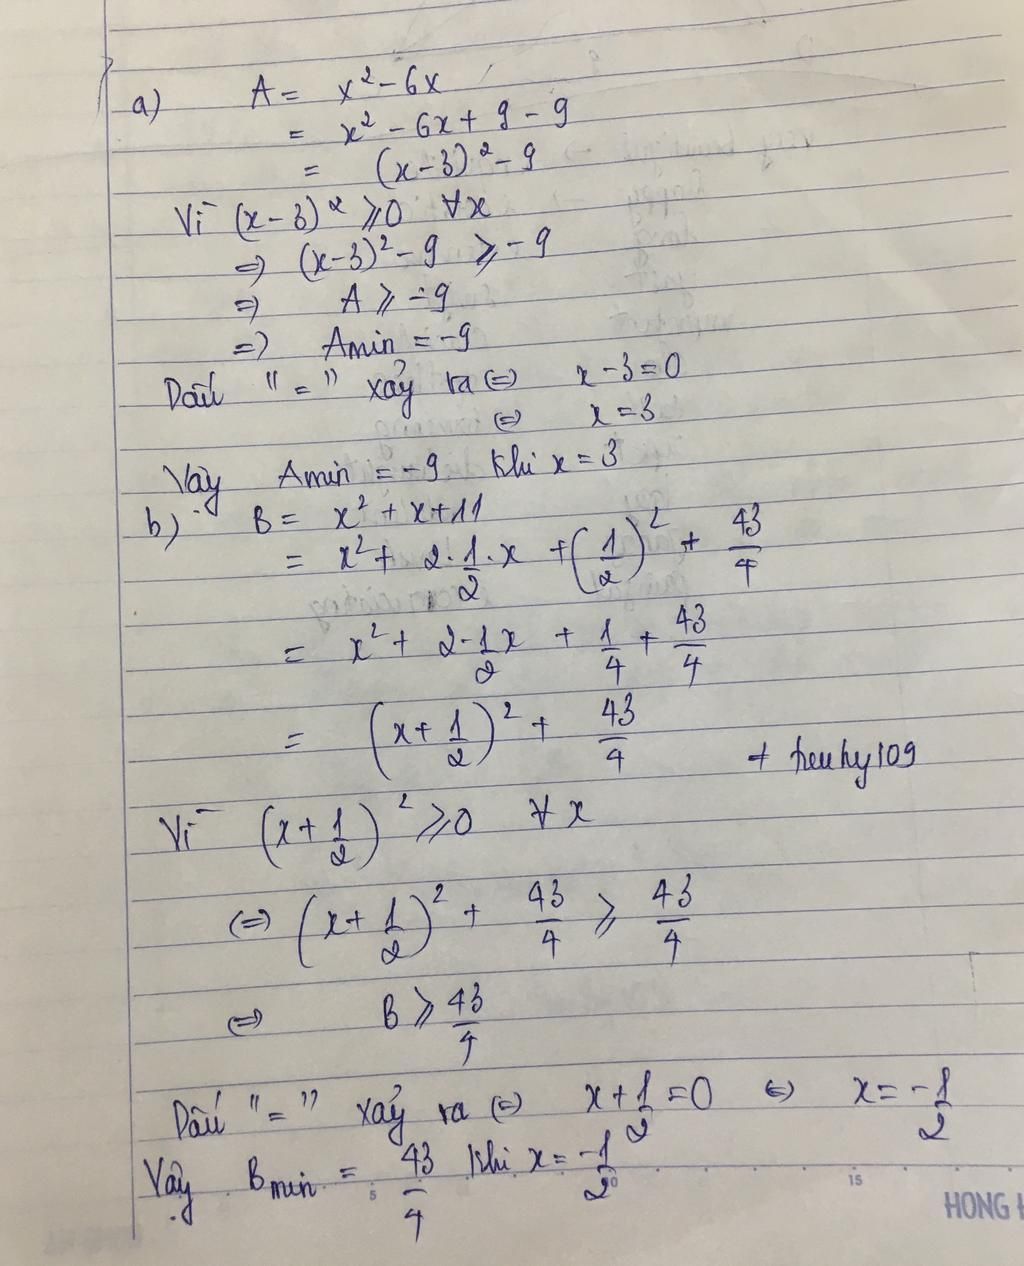 a) A = x² - 6x
= x² - 6x + 9 - 9
= (x-3)² - 9
Vì (x-3)² ⩾ 0 ∀x
⇒ (x-3)² - 9 ⩾ -9
⇒ A ⩾ -9
⇒ Amin = -9
Dấu "=" xảy ra ⇔ x - 3 = 0
⇔ x = 3
Vậy Amin = -9 khi x = 3
b) B = x² + x + 11
= x² + 2 . 1/2 . x + (1/2)² + 43/4
= x² + 2 . 1/2 x + 1/4 + 43/4
= (x + 1/2)² + 43/4
Vì (x + 1/2)² ⩾ 0 ∀x
⇔ (x + 1/2)² + 43/4 ⩾ 43/4
⇔ B ⩾ 43/4
Dấu "=" xảy ra ⇔ x + 1/2 = 0 ⇔ x = -1/2
Vậy Bmin = 43/4 khi x = -1/2
5 10 15
HONG